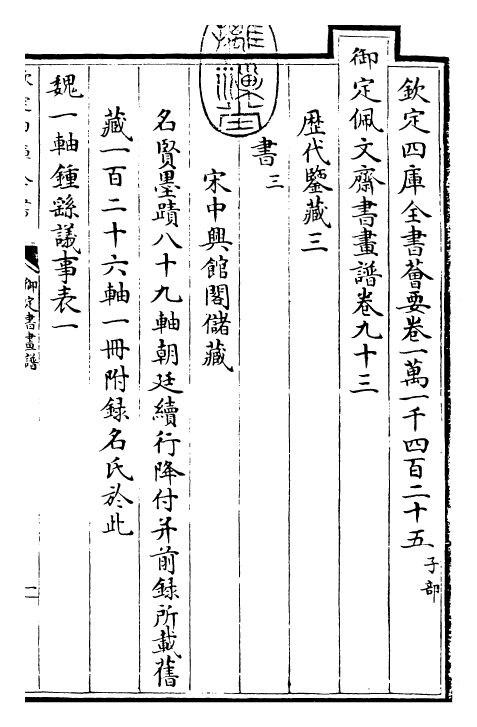 欽定四庫全書薈要卷一萬一千四百二十五 子部
御定佩文齋書畫譜卷九十三
歷代鑒藏三
書三
宋中興館閣儲藏
名賢墨蹟八十九軸朝廷續行降付并前録所載舊
藏一百二十六軸一冊附録名氏於此
魏一軸鍾繇議事表一
御定書畫譜
一